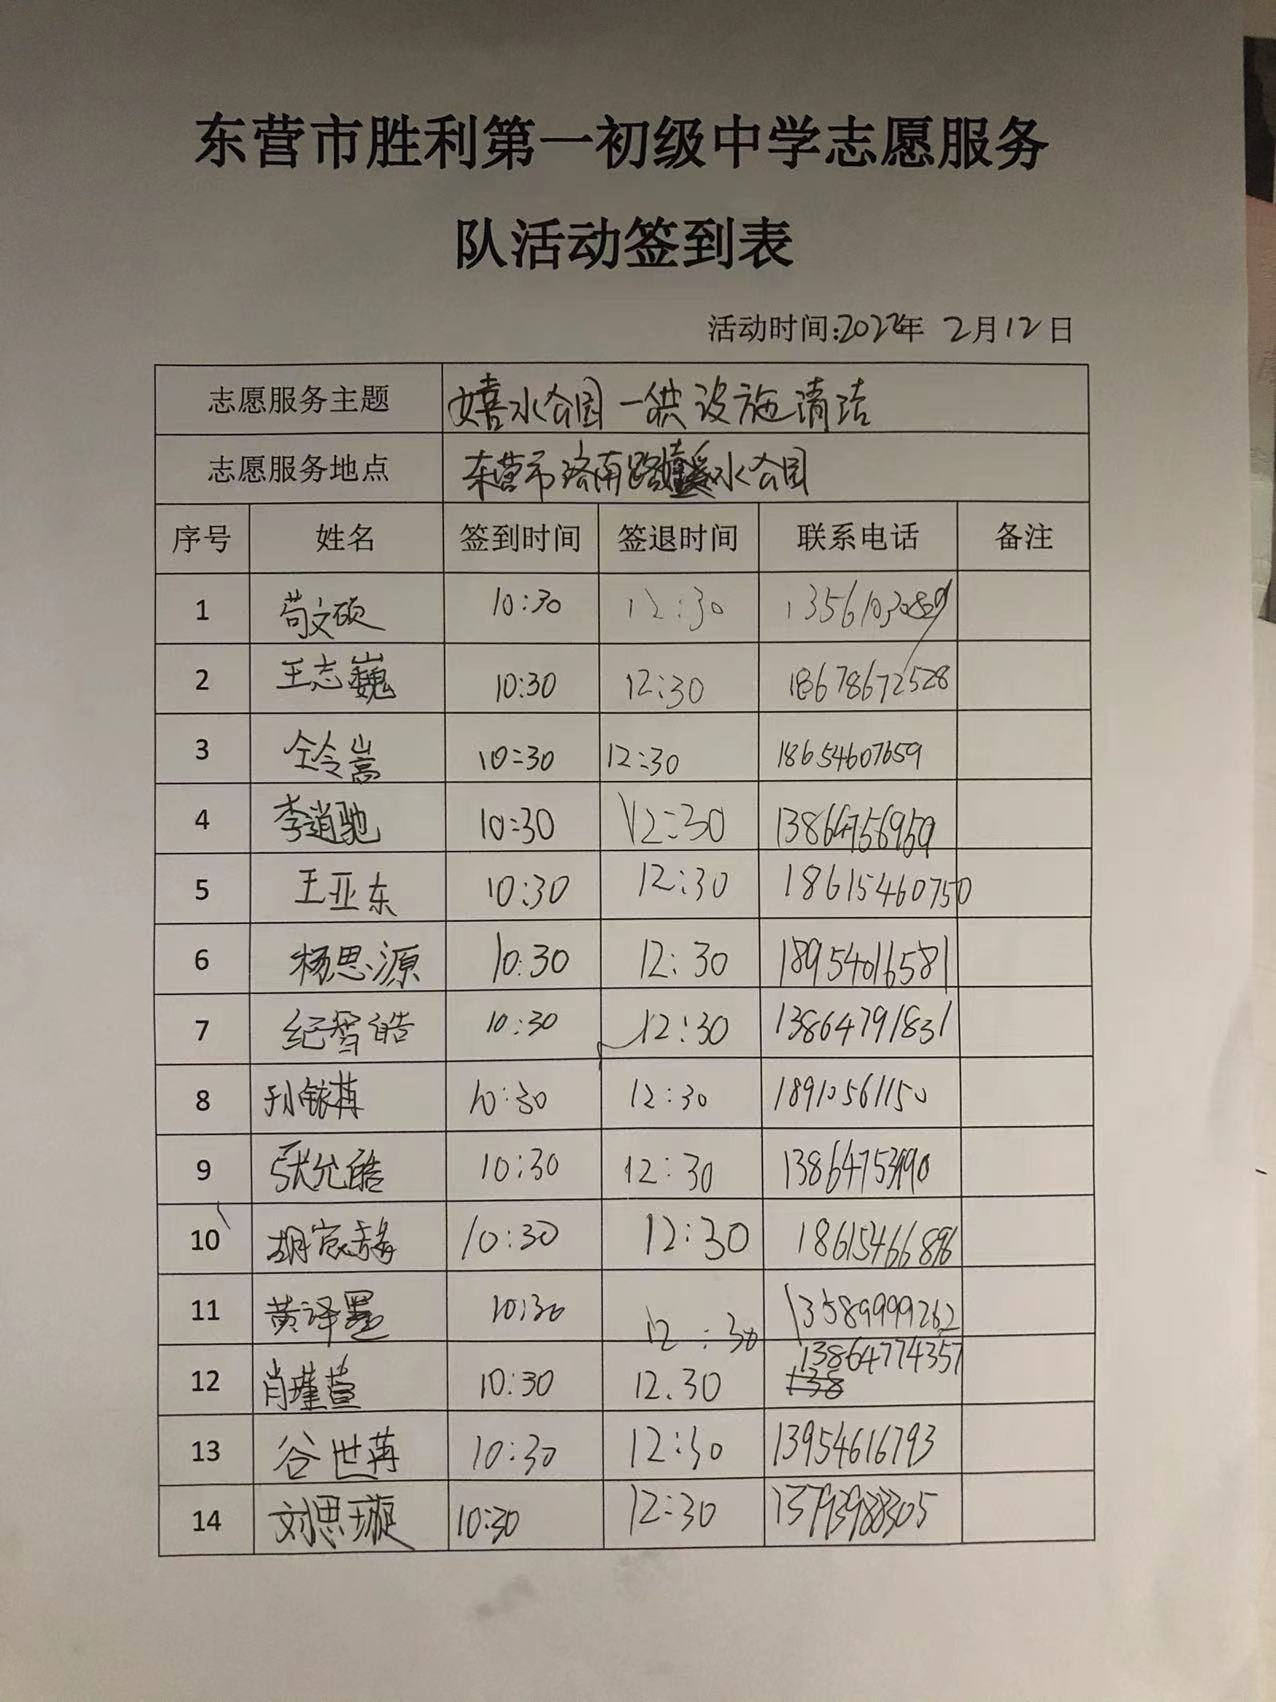 东营市胜利第一初级中学志愿服务
队活动签到表
活动时间:2022年 2月12日
志愿服务主题 嬉水公园 设施清洁
志愿服务地点 东营市济南路 水公园
序号 姓名 签到时间 签退时间 联系电话 备注
1 苟文硕 10:30 12:30
2 王志巍 10:30 12:30 18678672528
3 仝令嵩 10:30 12:30 18654607659
4 李逍驰 10:30 12:30 13864756959
5 王亚东 10:30 12:30 18615460750
6 杨思源 10:30 12:30 18954016581
7 纪智皓 10:30 12:30 13864791831
8 10:30 12:30 18910561150
9 张允皓 10:30 12:30
10 10:30 12:30 18615466896
11 黄译墨 10:30 12:30 13589999262
12 肖瑾萱 10:30 12.30 13864774357
13 谷世苒 10:30 12:30 13954616793
14 刘思璇 10:30 12:30 13793988305